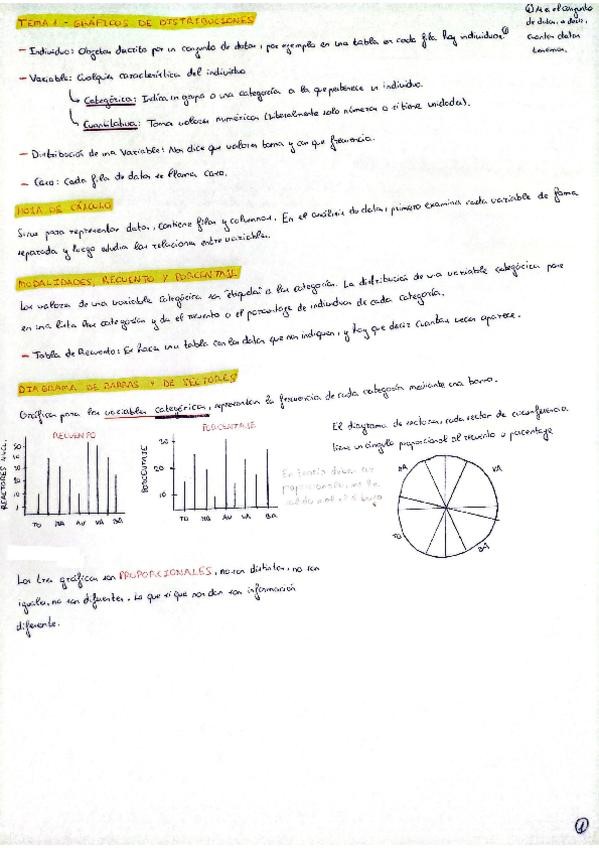 TEMA 1 - GRÁFICOS DE DISTRIBUCIONES
① N es el conjunto
de datos, es decir,
cuantos datos
tenemos.
- Individuo: Objetos descrito por un conjunto de datos, por ejemplo en una tabla en cada fila hay individuos①
- Variable: Cualquier característica del individuo
↳ Categórica: Indica un grupo o una categoría a la que pertenece un individuo.
↳ Cuantitativa: Toma valores numéricos (literalmente solo números o si tiene unidades).
- Distribución de una Variable: Nos dice que valores toma y con que frecuencia.
- Caso: Cada fila de datos se llama caso.
HOJA DE CÁLCULO
Sirve para representar datos, contiene filas y columnas. En el análisis de datos, primero examina cada variable de forma
separada y luego estudia las relaciones entre variables.
MODALIDADES, RECUENTO Y PORCENTAJE
Los valores de una variable categórica son "etiquetas" a las categorías. La distribución de una variable categórica pone
en una lista las categorías y da el recuento o el porcentaje de individuos de cada categoría.
- Tabla de Recuento: Se hace una tabla con los datos que nos indiquen, y hay que decir cuantas veces aparece.
DIAGRAMA DE BARRAS Y DE SECTORES
Gráficos para las variables categóricas, representan la frecuencia de cada categoría mediante una barra.
El diagrama de sectores, cada sector de circunferencia
tiene un ángulo proporcional al recuento o porcentaje
RECUENTO
REACTORES NUCL.
TO BA AV VA BA
PORCENTAJE
PORCENTAJE
30
20
10
TO AV VA BA
En teoría deben ser
proporcionales
BA VA
TO BA
Los tres gráficos son PROPORCIONALES, no son distintos, no son
iguales, no son diferentes. Lo que sí que nos dan son información
diferente.
1